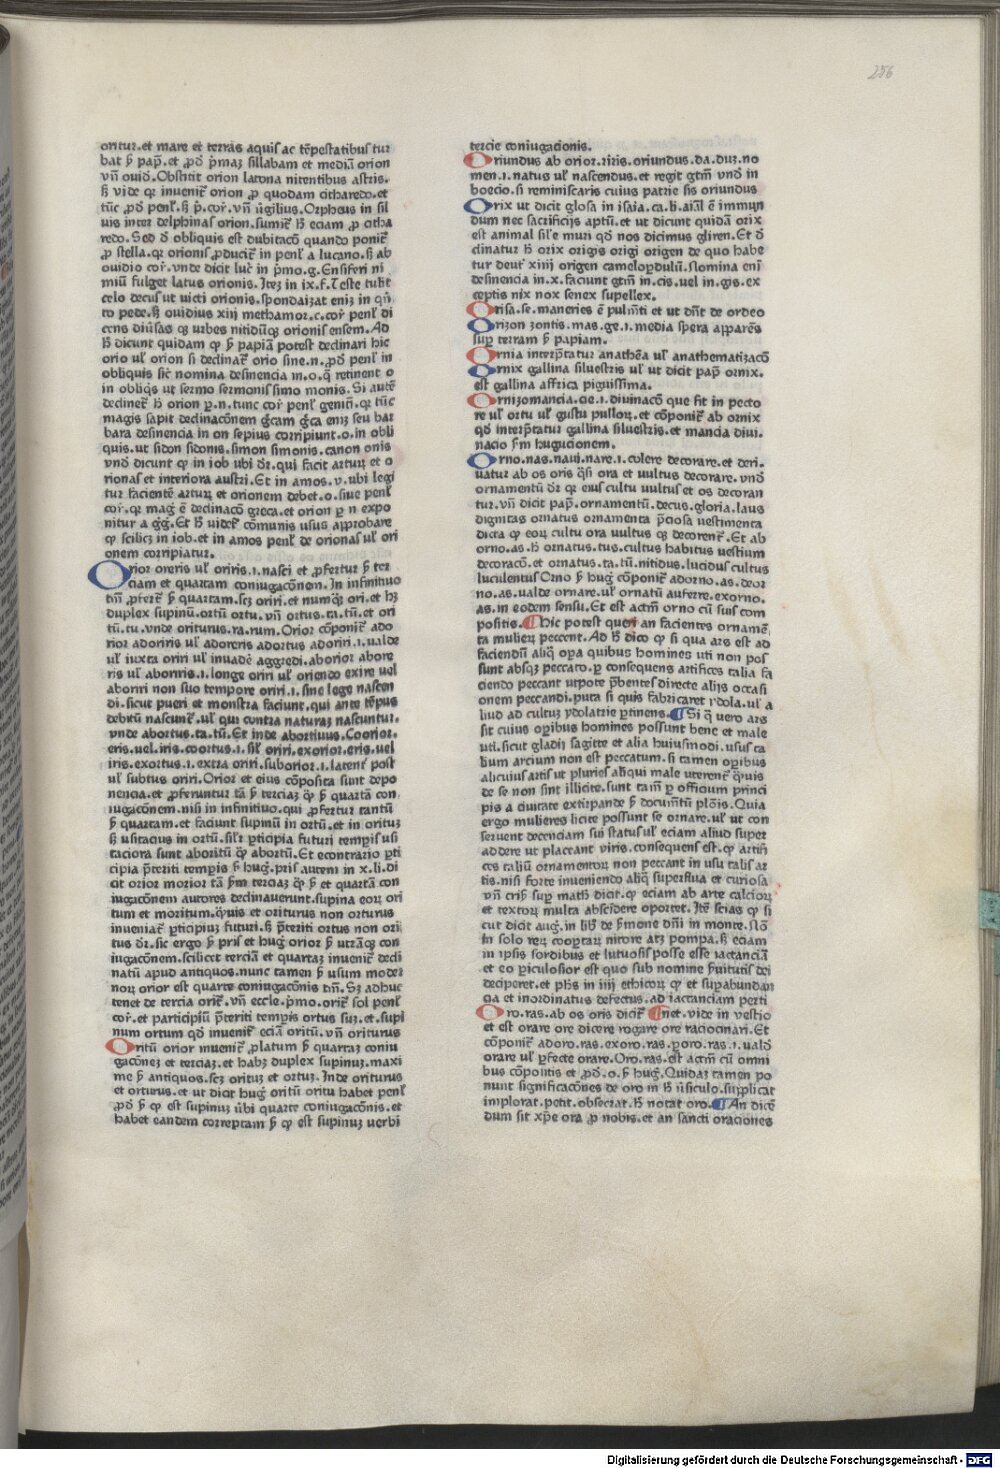 256
oritur.et mare et terras aquis ac tēpestatibus tur
bat ꝑ pap̄.et ꝓd' p̄maz sillabam et mediā orion
vn̄ ouid. Obstitit orion latona nitentibus astris.
ſꝫ vide qꝛ inuenit᷑ orion ꝓ quodam citharedo.et
tūc ꝓd' penl'.ſꝫ p̄.cor̄.vn̄ v̄gilius. Orpheus in sil
uis inter delphinas orion.sumit᷑ h̄ eciam ꝓ citha
redo. Sed d' obliquis est dubitacō quando ponit᷑
ꝓ stella.qꝛ orionis ꝓducit᷑ in penl' a lucano.ſꝫ ab
ouidio cor̄.vnde dicit luc̄ in p̄mo.g. Ensiferi ni
miū fulget latus orionis. Itez in ix.
celo decus ut uicti orionis.spondaizat eniz in qn̄
to pede.ſꝫ ouidius xiij methamor.c.cor̄ penl' di
cens diūsas qꝫ urbes nitidūqꝫ orionis ensem. Ad
h̄ dicunt quidam ꝙ ꝑ papiā potest declinari hic
orio ul' orion si declinat᷑ orio sine.n.ꝓd' penl' in
obliquis sic̄ nomina desinencia in.o.q̄ retinent o
in obliq̄s ut sermo sermonis simo monis. Si autē
declinet᷑ h̄ orion ꝑ.n.tunc cor̄ penl' genit̄i.qꝛ tūc
magis sapit declinacōnem gc̄am gc̄a eniz seu bar
bara desinencia in on sepius corripiunt.o.in obli
quis.ut sidon sidonis.simon simonis.canon onis
vnd' dicunt ꝙ in iob ubi dr̄.qui facit arturꝫ et o
rionas et interiora austri. Et in amos.v.ubi legi
tur facientē arturꝫ et orionem debet.o.siue penl'
cor̄.qꝛ maḡ ē declinacō greca.et orion ꝑ n expo
nitur a gḡ. Et h̄ uidet᷑ cōmunis usus approbare
ꝙ scilicꝫ in iob.et in amos penl' de orionas ul' ori
onem corripiatur.
Orior oreris ul' oriris.i.nasci et ꝓfertur ꝑ ter
ciam et quartam coniugacōnem. In infinitiuo
tn̄ ꝓfert᷑ ꝑ quartam.scꝫ oriri.et numqꝫ ori.et hꝫ
duplex supinū.ortū ortu.vn̄ ortus.ta.tū.et ori
tū.tu.vnde oriturus.ra.rum. Orior cōponit᷑ ado
rior adoriris ul' adoreris adortus adoriri.i.ualde
ul' iuxta oriri ul' inuadē aggredi.aborior abore
ris ul' aboriris.i.longe oriri ul' oriendo exire uel
aboriri non suo tempore oriri.i.sine lege nascen
di.sicut pueri et monstra faciunt.qui ante tēpus
debitū nascunt᷑.ul' qui contra naturaz nascuntur.
vnde abortus.ta.tū. Et inde abortiuus. Coorior.
eris.uel.iris.coortus.i.sil' oriri.exorior.eris.uel
iris.exortus.i.extra oriri.suborior.i.latent᷑ post
ul' subtus oriri. Orior et eius cōposita sunt depo
nencia.et ꝓferuntur tā ꝑ terciaz qꝫ ꝑ quartā con
iugacōnem.nisi in infinitiuo.qui ꝓfertur tantū
ꝑ quartam.et faciunt supinū in ortū.et in orituz
ſꝫ usitacius in ortū.sil'r ꝑticipia futuri tempis usi
taciora sunt aboritū qꝫ abortū. Et econtrario ꝑti
cipia p̄teriti tempis ꝑ huḡ.pris autem in x.li.di
cit orior morior tā ꝑm terciaz qꝫ ꝑ et quartā con
iugacōnem autores declinauerunt.supina eorꝫ ori
tum et moritum.q̄uis et oriturus non orturus
inueniat᷑ ꝑticipiuꝫ futuri.ſꝫ p̄teriti ortus non ori
tus dr̄.sic ergo ꝑ pris et huḡ orior ꝑ utrāqꝫ con
iugacōnem.scilicet terciā et quartaꝫ inuenit᷑ decli
natū apud antiquos.nunc tamen ꝑ usum moder
norꝫ orior est quarte coniugacōnis tn̄. Sꝫ adhuc
tenet de tercia orit᷑.vn̄ eccle.p̄mo.orit᷑ sol penl'
cor̄.et participiū p̄teriti tempis ortus suꝫ.et supi
num ortum qd' inuenit᷑ eciā oritū.vn̄ oriturus
Oritū orior inuenit᷑ ꝓlatum ꝑ quartaꝫ coniu
gacōneꝫ et terciaꝫ.et habꝫ duplex supinuꝫ.maxi
me ꝑ antiquos.scꝫ orituꝫ et ortuꝫ. Inde oriturus
et orturus.et ut dicit huḡ oritū oritu habet penl'
ꝓd' ꝑ ꝙ est supinuꝫ v̄bi quarte coniugacōnis.et
habet eandem correptam ꝑ ꝙ est supinuꝫ uerbi
tercie coniugacionis.
Oriundus ab orior.riris.oriundus.da.duꝫ.no
men.i.natus ul' nascendus.et regit gtm̄ vnd' in
boecio.si reminiscaris cuius patrie sis oriundus
Orix ut dicit glosa in isaia.ca.li.aīal ē immun
dum nec sacrificijs aptū.et ut dicunt quidā orix
est animal sil'e muri qd' nos dicimus gliren. Et d'
clinatur h̄ orix origis origi origen de quo habe
tur deut᷑ xiiij origen camelopdulū. Nomina eni
desinencia in.x.faciunt gtm̄ in.cis.uel in.gis.ex
ceptis nix nox senex supellex.
Orisa.se.maneries ē pulm̄ti et ut dn̄t de ordeo
Orizon zontis.mas.ge.i.media spera apparēs
suꝑ terram ꝑ papiam.
Ornia interp̄tatur anathēa ul' anathematizacō
Ornix gallina siluestris ul' ut dicit pap̄ ornix.
est gallina affrica pīguissima.
Ornizomancia.ge.i.diuinacō que fit in pecto
re ul' ortu ul' gustu pullorꝫ.et cōponit᷑ ab ornix
qd' interp̄tatur gallina siluestris.et mancia diui.
nacio ꝑm hugucionem.
Orno.nas.naui.nare.i.colere decorare.et deri.
uatur ab os oris q̄si ora et uultus decorare.vnd'
ornamentū dr̄ qꝛ eius cultu uultus et os decoran
tur.vn̄ dicit pap̄.ornamentū.decus.gloria.laus
dignitas ornatus ornamenta p̄ciosa uestimenta
dicta ꝙ eorꝫ cultu ora uultus qꝫ decorent᷑. Et ab
orno.as.h̄ ornatus.tus.cultus habitus uestium
decoracō.et ornatus.ta.tū.nitidus.lucidus cultus
luculentus Orno ꝑ huḡ cōponit᷑ adorno.as.deor
no.as.ualde ornare.ul' ornatū auferre.exorno.
as.in eodem sensu. Et est actm̄ orno cū suis com
positis. ¶ Hic potest queri an facientes ornamē
ta mulierꝫ peccent. Ad h̄ dico ꝙ si qua ars est ad
faciendū aliq̄ opa quibus homines uti non pos
sunt absqꝫ peccato.ꝑ consequens artifices talia fa
ciendo peccant utpote p̄bentes directe alijs occasi
onem peccandi.puta si quis fabricaret ydola.ul' a
liud ad cultuꝫ ydolatrie ꝑtinens. ¶ Si q̄ vero ars
sit cuius opibus homines possunt bene et male
uti.sicut gladij sagitte et alia huiusmodi.usus ta
lium arcium non est peccatum.si tamen opibus
alicuius artis ut pluries aliqui male uterent᷑ q̄uis
de se non sint illicite.sunt tam̄ ꝑ officium princi
pis a ciuitate extirpande ꝑ documtū plōis. Quia
ergo mulieres licite possunt se ornare.ul' ut con
seruent decenciam sui status ul' eciam aliud super
addere ut placeant viris.consequens est.ꝙ artifi
ces taliū ornamentorꝫ non peccant in usu talis ar
tis.nisi forte inueniendo aliq̄ superflua et curiosa
vn̄ cris̄ suꝑ math̄ dicit.ꝙ eciam ab arte calciorꝫ
et textorꝫ multa abscidere oportet. Itē scias ꝙ si
cut dicit auḡ.in lib̄ de ꝑmone dn̄i in monte. Nō
in solo rerꝫ cooptarꝫ nitore atꝫ pompa.ſꝫ eciam
in ipsis sordibus et lutuosis posse esse iactanciā
et eo ꝑiculosior est quo sub nomine ꝑuitutis dei
deciperet.et phs in iiij ethicorꝫ ꝙ et supabundan
cia et inordinatus defectus.ad iactanciam perti
Oro.ras.ab os oris dicit᷑ ¶ net.vide in vestio
et est orare ore dicere rogare ore raciocinari. Et
cōponit᷑ adoro.ras.exoro.ras.ꝑoro.ras.i.uald'
orare ul' ꝑfecte orare. Oro.ras.est actm̄ cū omni
bus cōpositis et ꝓd'.o.ꝑ huḡ. Quidaꝫ tamen po
nunt significacōnes de oro in h̄ v̄siculo.supplicat
implorat.petit.obsecrat.h̄ notat oro. ¶ An dicē
dum sit xp̄e ora ꝓ nobis.et an sancti oraciones
Digitalisierung gefördert durch die Deutsche Forschungsgemeinschaft - DFG